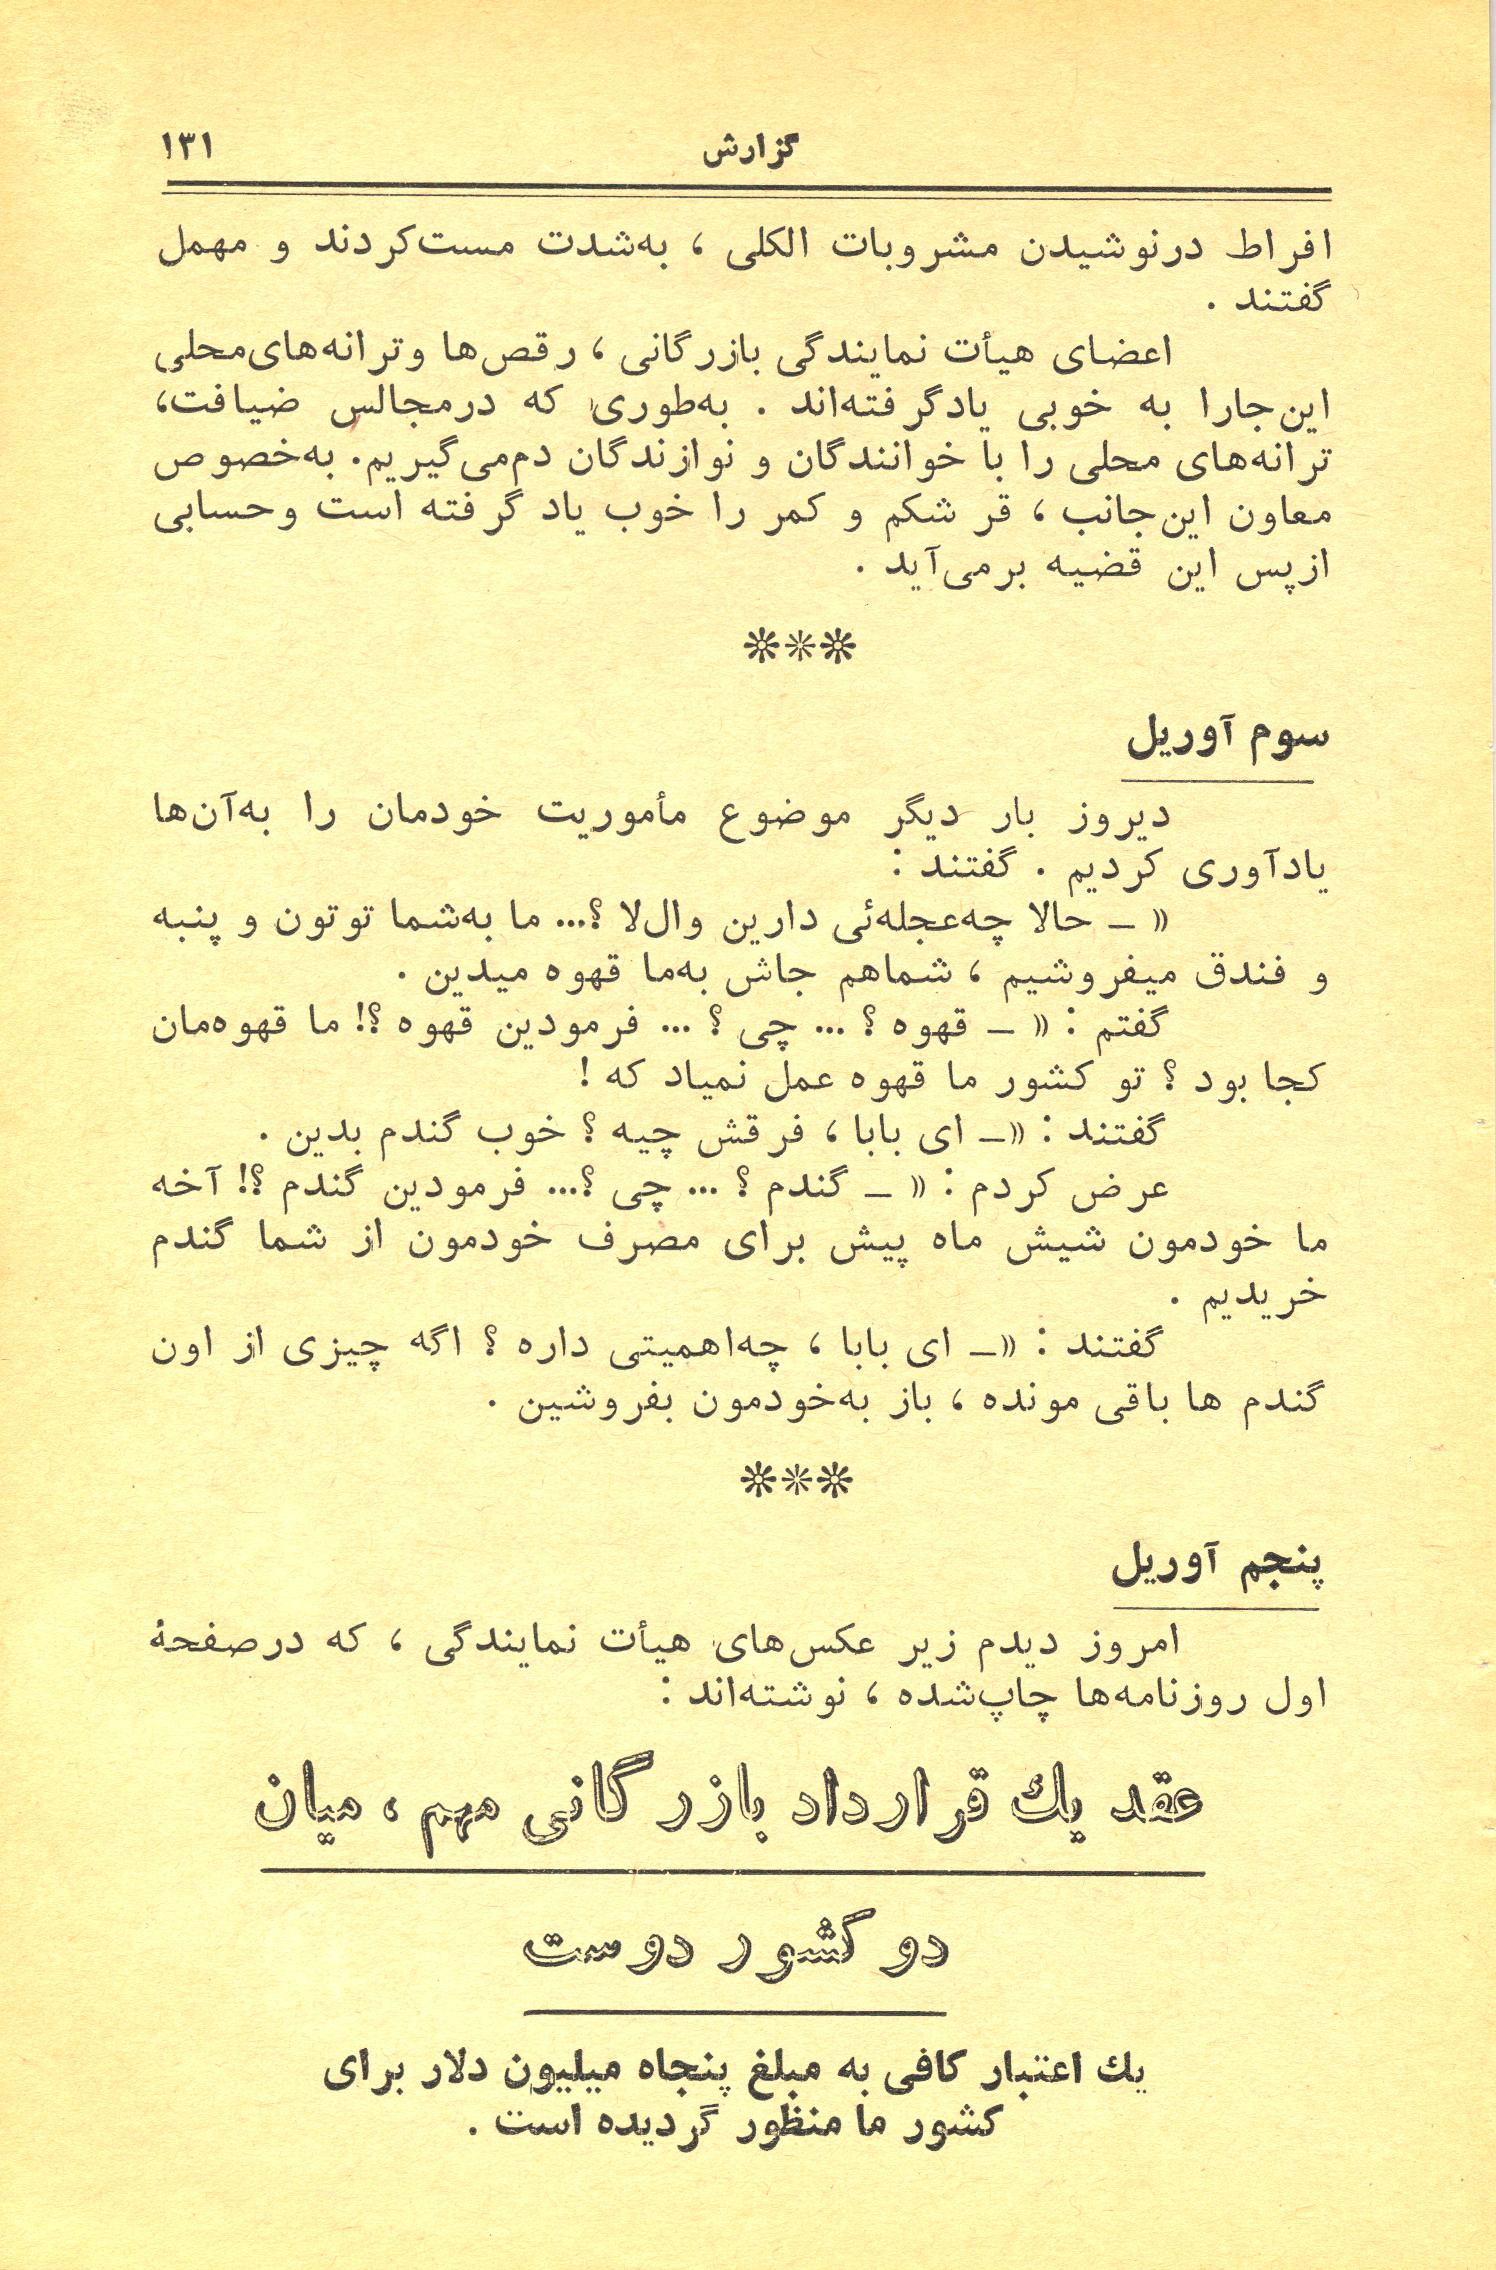 گزارش ۱۳۱
افراط درنوشیدن مشروبات الکلی ، به‌شدت مست‌کردند و مهمل
گفتند .
اعضای هیأت نمایندگی بازرگانی ، رقص‌ها وترانه‌های‌محلی
این‌جارا به خوبی یادگرفته‌اند . به‌طوری که درمجالس ضیافت،
ترانه‌های محلی را با خوانندگان و نوازندگان دم‌می‌گیریم. به‌خصوص
معاون این‌جانب ، قر شکم و کمر را خوب یاد گرفته است وحسابی
ازپس این قضیه برمی‌آید .
***
سوم آوریل
دیروز بار دیگر موضوع مأموریت خودمان را به‌آن‌ها
یادآوری کردیم . گفتند :
« ـ حالا چه‌عجله‌ئی دارین وال‌لا ؟... ما به‌شما توتون و پنبه
و فندق میفروشیم ، شماهم جاش به‌ما قهوه میدین .
گفتم : « ـ قهوه ؟ ... چی ؟ ... فرمودین قهوه ؟! ما قهوه‌مان
کجا بود ؟ تو کشور ما قهوه عمل نمیاد که !
گفتند : «ـ ای بابا ، فرقش چیه ؟ خوب گندم بدین .
عرض کردم : « ـ گندم ؟ ... چی ؟... فرمودین گندم ؟! آخه
ما خودمون شیش ماه پیش برای مصرف خودمون از شما گندم
خریدیم .
گفتند : «ـ ای بابا ، چه‌اهمیتی داره ؟ اگه چیزی از اون
گندم ها باقی مونده ، باز به‌خودمون بفروشین .
***
پنجم آوریل
امروز دیدم زیر عکس‌های هیأت نمایندگی ، که درصفحهٔ
اول روزنامه‌ها چاپ‌شده ، نوشته‌اند :
عقد یك قرارداد بازرگانی مهم ، میان
دو کشور دوست
یك اعتبار کافی به مبلغ پنجاه میلیون دلار برای
کشور ما منظور گردیده است .